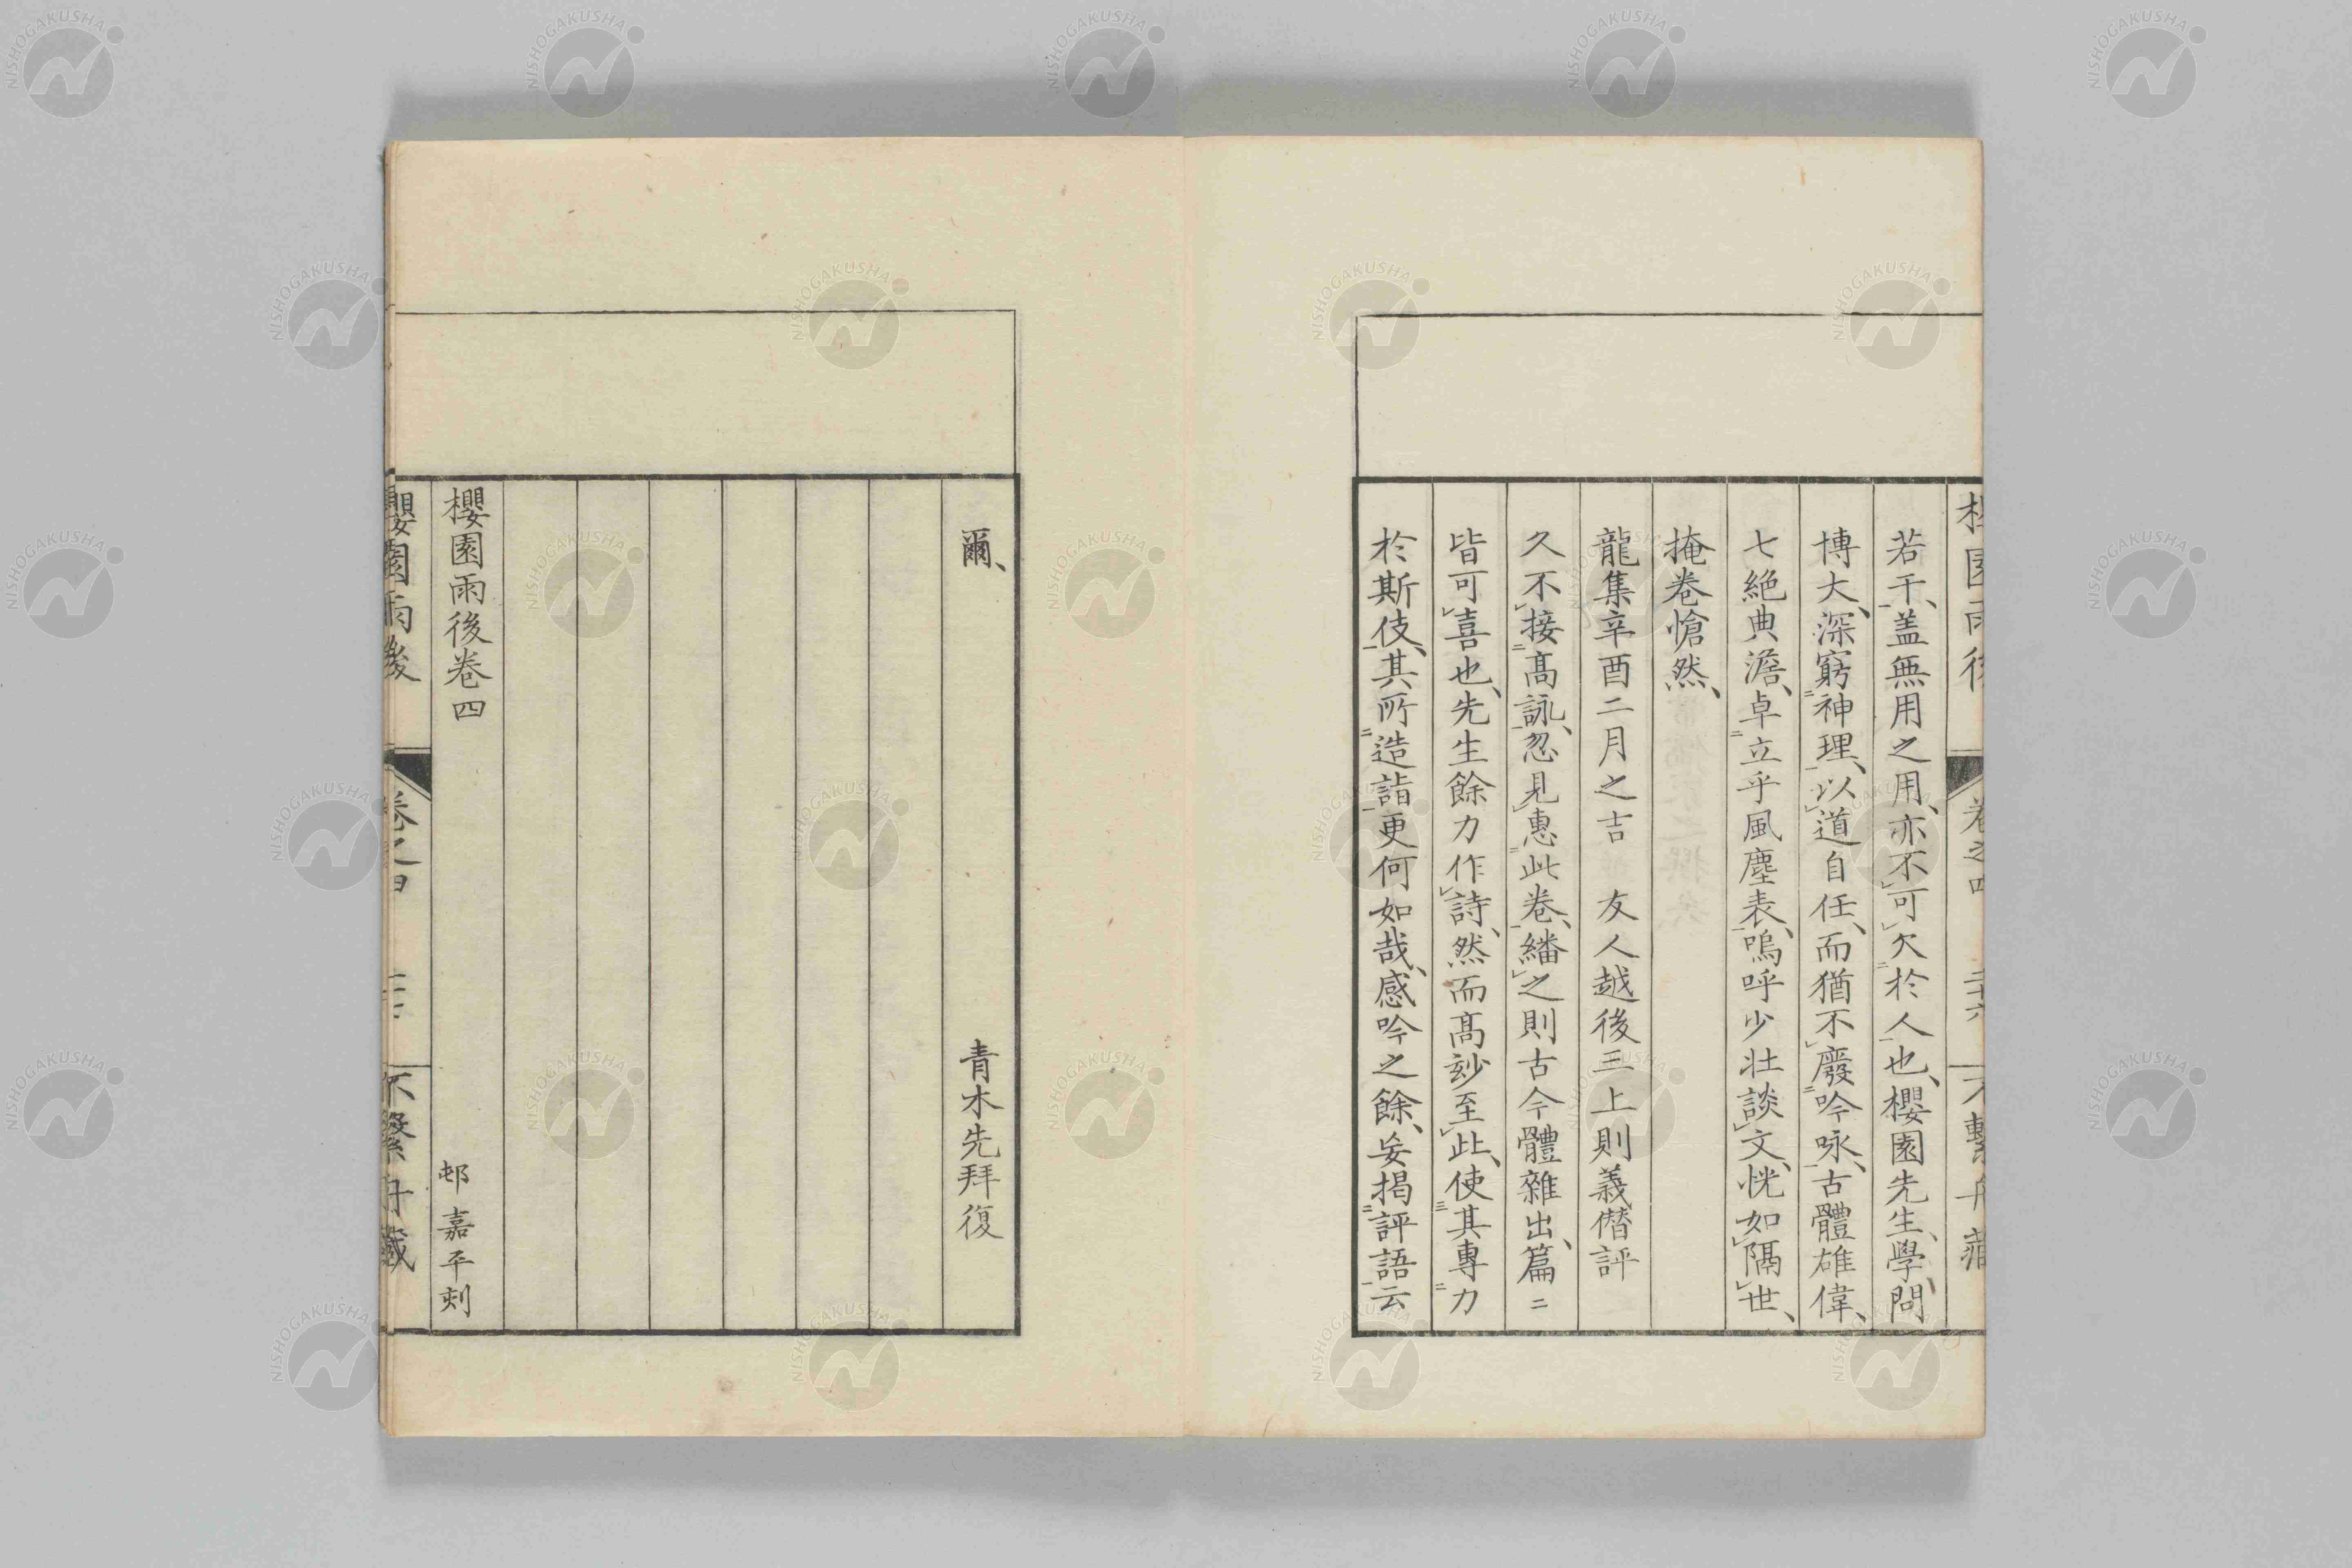 若干、盖無用之用、亦不可欠於人也、櫻園先生、學問
博大、深窮神理、以道自任、而猶不廢吟咏、古體雄偉、
七絕典澹、卓立乎風塵表、嗚呼少壯談文、恍如隔世、
掩卷愴然、
龍集辛酉二月之吉 友人越後三上則義僭評
久不接高詠、忽見惠此卷、繙之則古今體雜出、篇〻
皆可喜也、先生餘力作詩、然而高玅至此、使其專力
於斯伎、其所造詣更何如哉、感吟之餘、妄揭評語云
爾、
青木先拜復
櫻園雨後卷四
邨嘉平刻
櫻園雨後 卷之四 二十七 不繫舟藏
櫻園雨後 卷之四 二十六 不繫舟藏
NISHOGAKUSHA